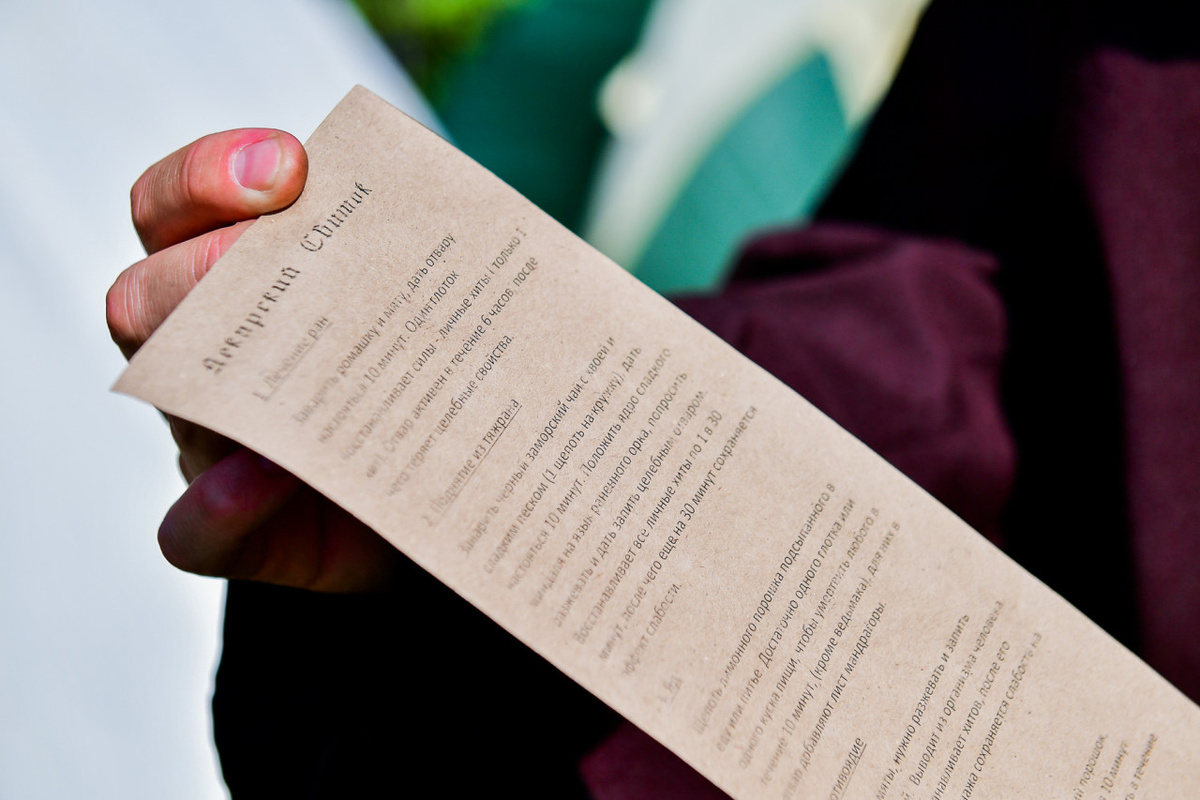 Лекарский Свиток
1. Лечение ран
Заварить ромашку и мяту, дать отвару
настояться 10 минут. Один глоток
восстанавливает силы - личные хиты ( только 1
хит. Отвар активен в течение 6 часов, после
чего теряет целебные свойства.
2. Поднятие из тяжрана
Заварить черный заморский чай с хвоей и
сладким песком (1 щепоть на кружку), дать
настояться 10 минут. Положить ядро сладкого
миндаля на язык раненного орка, попросить
разжевать и дать запить целебным отваром.
Восстанавливает все личные хиты по 1 в 30
минут, после чего еще на 30 минут сохраняется
эффект слабости.
3. Яд
Щепоть лимонного порошка подсыпанного в
еду или питье. Достаточно одного глотка или
одного куска пищи, чтобы умертвить любого в
течение 10 минут, (кроме ведьмака), для них в
добавляют лист мандрагоры.
мяты, нужно разжевать и запить
Выводит из организма человека
хитов, после его
сохраняется слабость на
порошок.
10 минут.
в течение